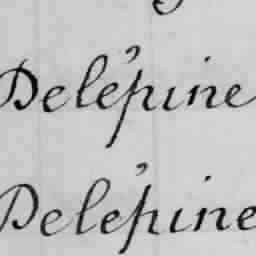 Delépine
Delépine